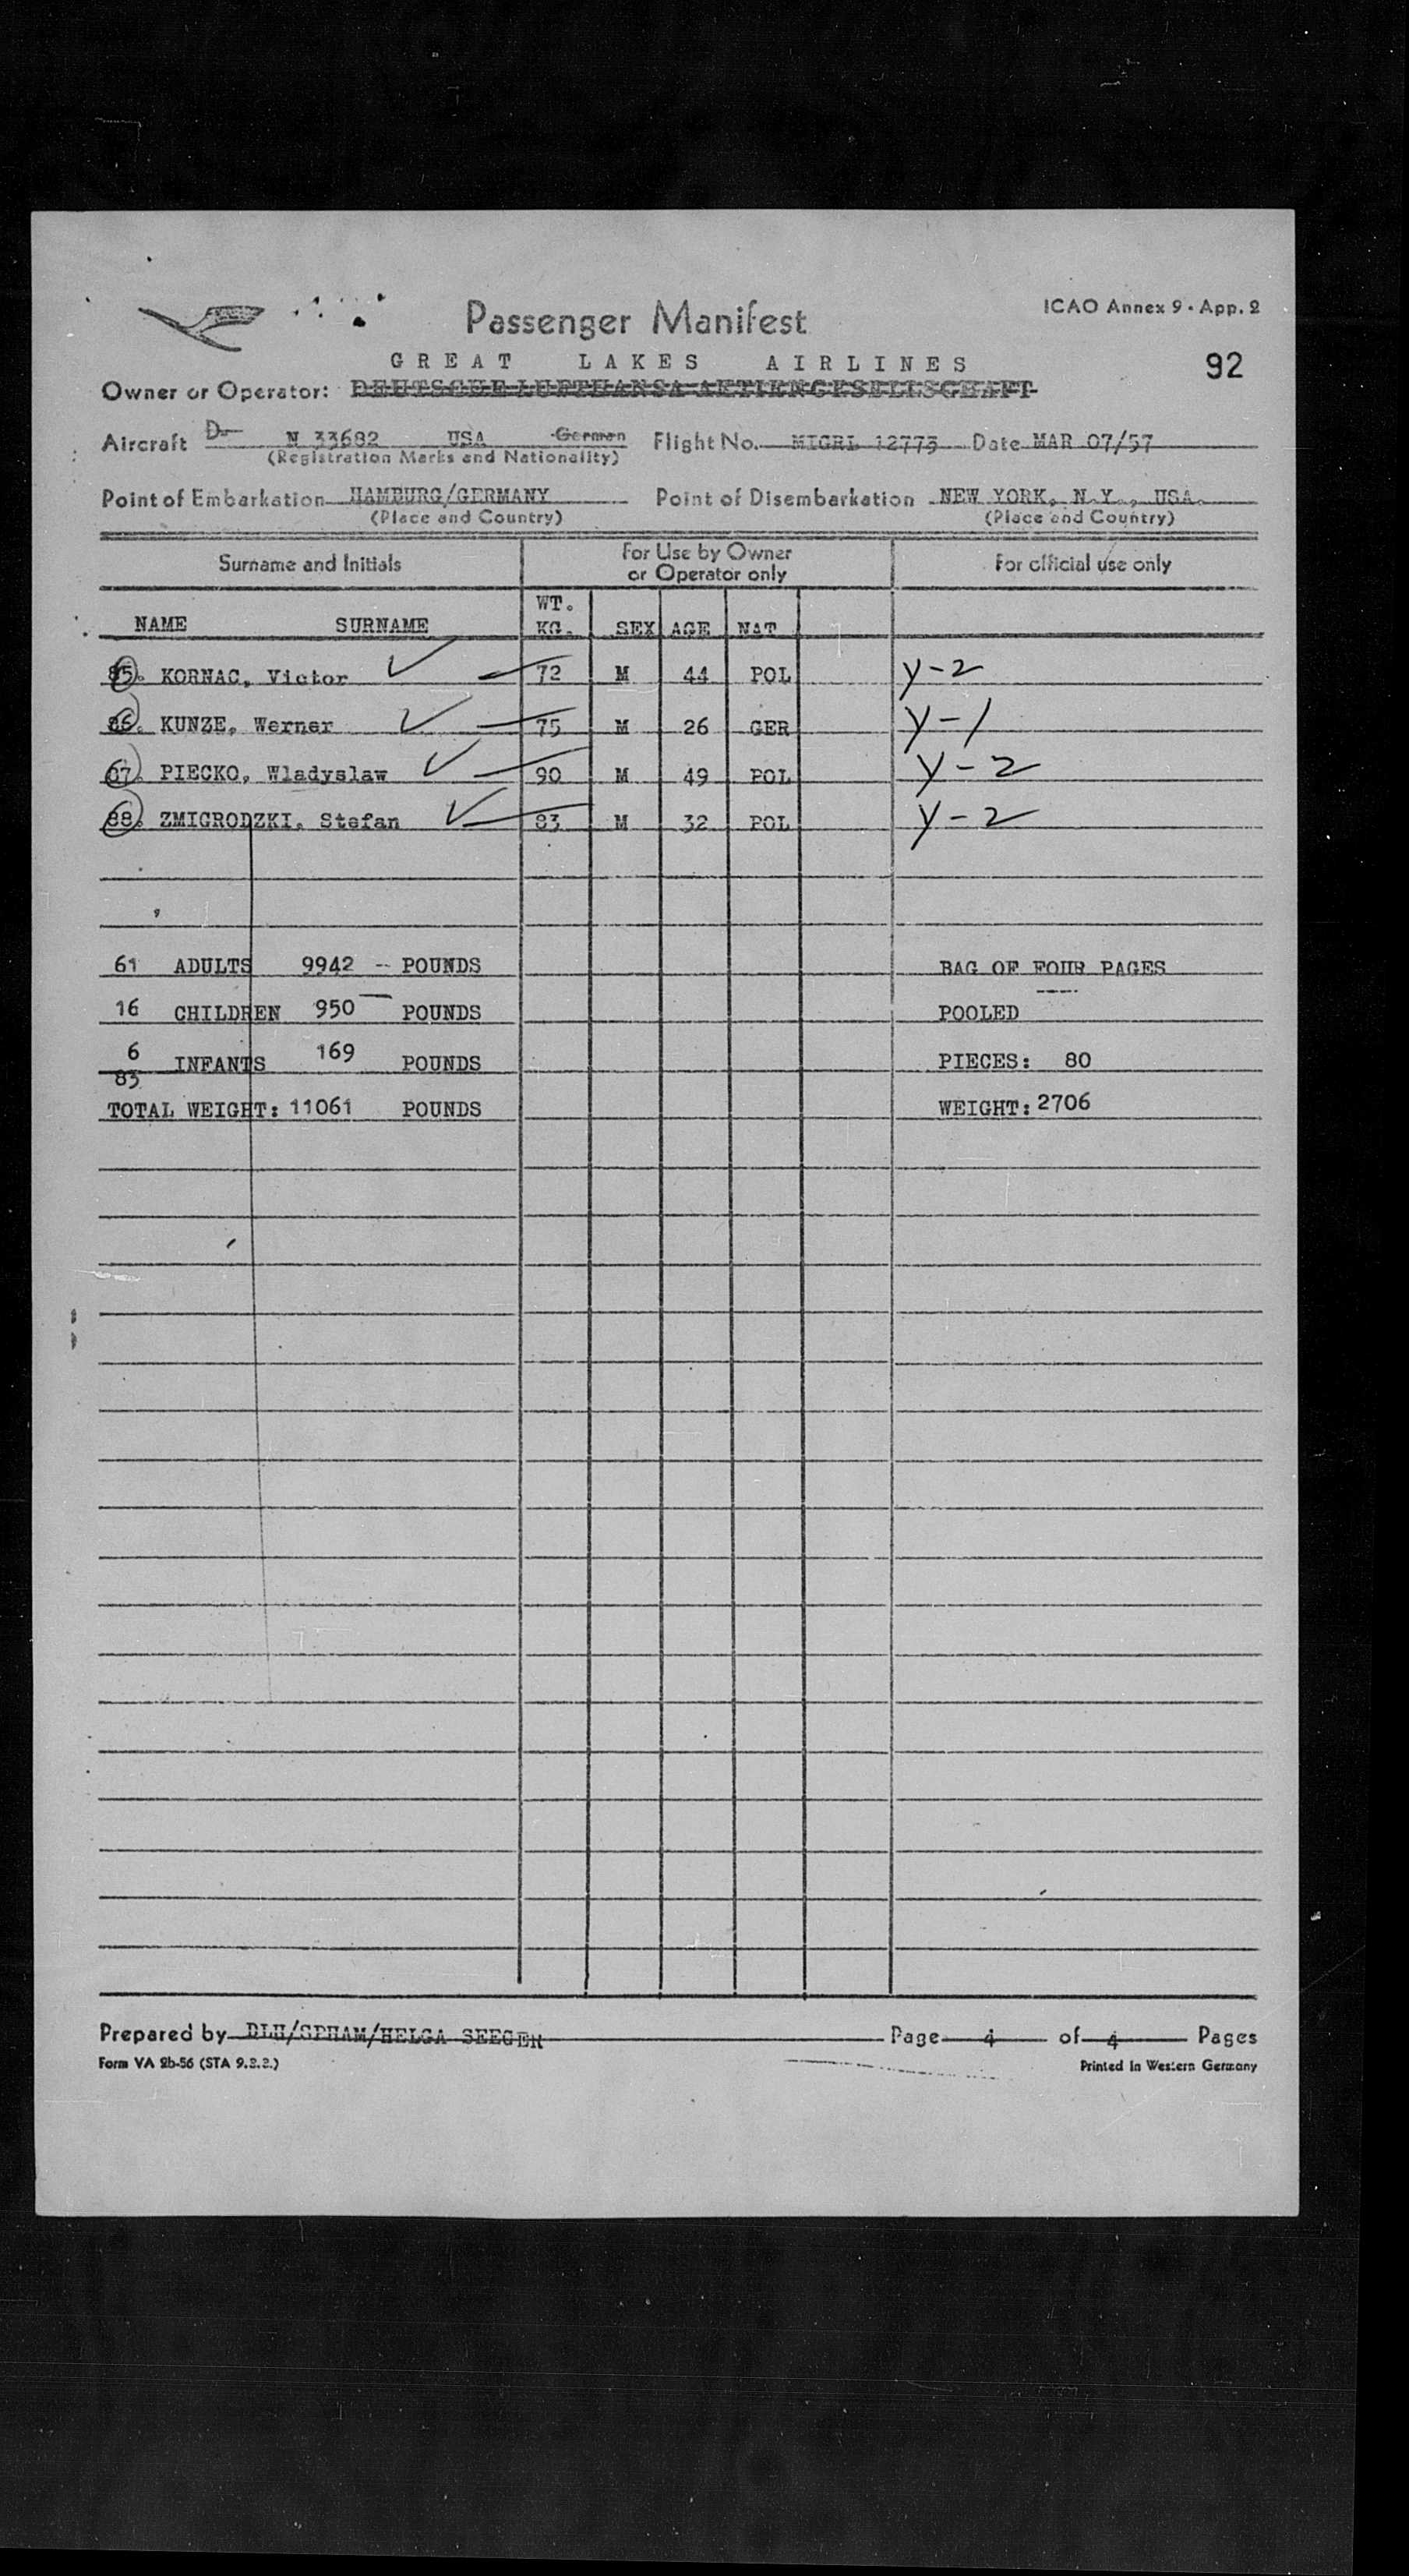 Passenger Manifest
ICAO Annex 9 · App. 2
GREAT LAKES AIRLINES
92
Owner or Operator: DEUTSCHE LUFTHANSA AKTIENGESELLSCHAFT
Aircraft D- N 33682 USA German Flight No. MIGRL 12773 Date MAR 07/57
(Registration Marks and Nationality)
Point of Embarkation HAMBURG/GERMANY Point of Disembarkation NEW YORK, N.Y., USA.
(Place and Country) (Place and Country)
Surname and Initials For Use by Owner or Operator only For official use only
NAME SURNAME WT. KG. SEX AGE NAT
85. KORNAC, Victor 72 M 44 POL Y-2
86. KUNZE, Werner 75 M 26 GER Y-1
87. PIECKO, Wladyslaw 90 M 49 POL Y-2
88. ZMIGRODZKI, Stefan 83 M 32 POL Y-2
61 ADULTS 9942 -- POUNDS BAG OF FOUR PAGES
16 CHILDREN 950 POUNDS POOLED
6 INFANTS 169 POUNDS PIECES: 80
83
TOTAL WEIGHT: 11061 POUNDS WEIGHT: 2706
Prepared by DLH/SPHAM/HELGA SEEGER Page 4 of 4 Pages
Form VA 2b-56 (STA 9.2.2.) Printed in Western Germany